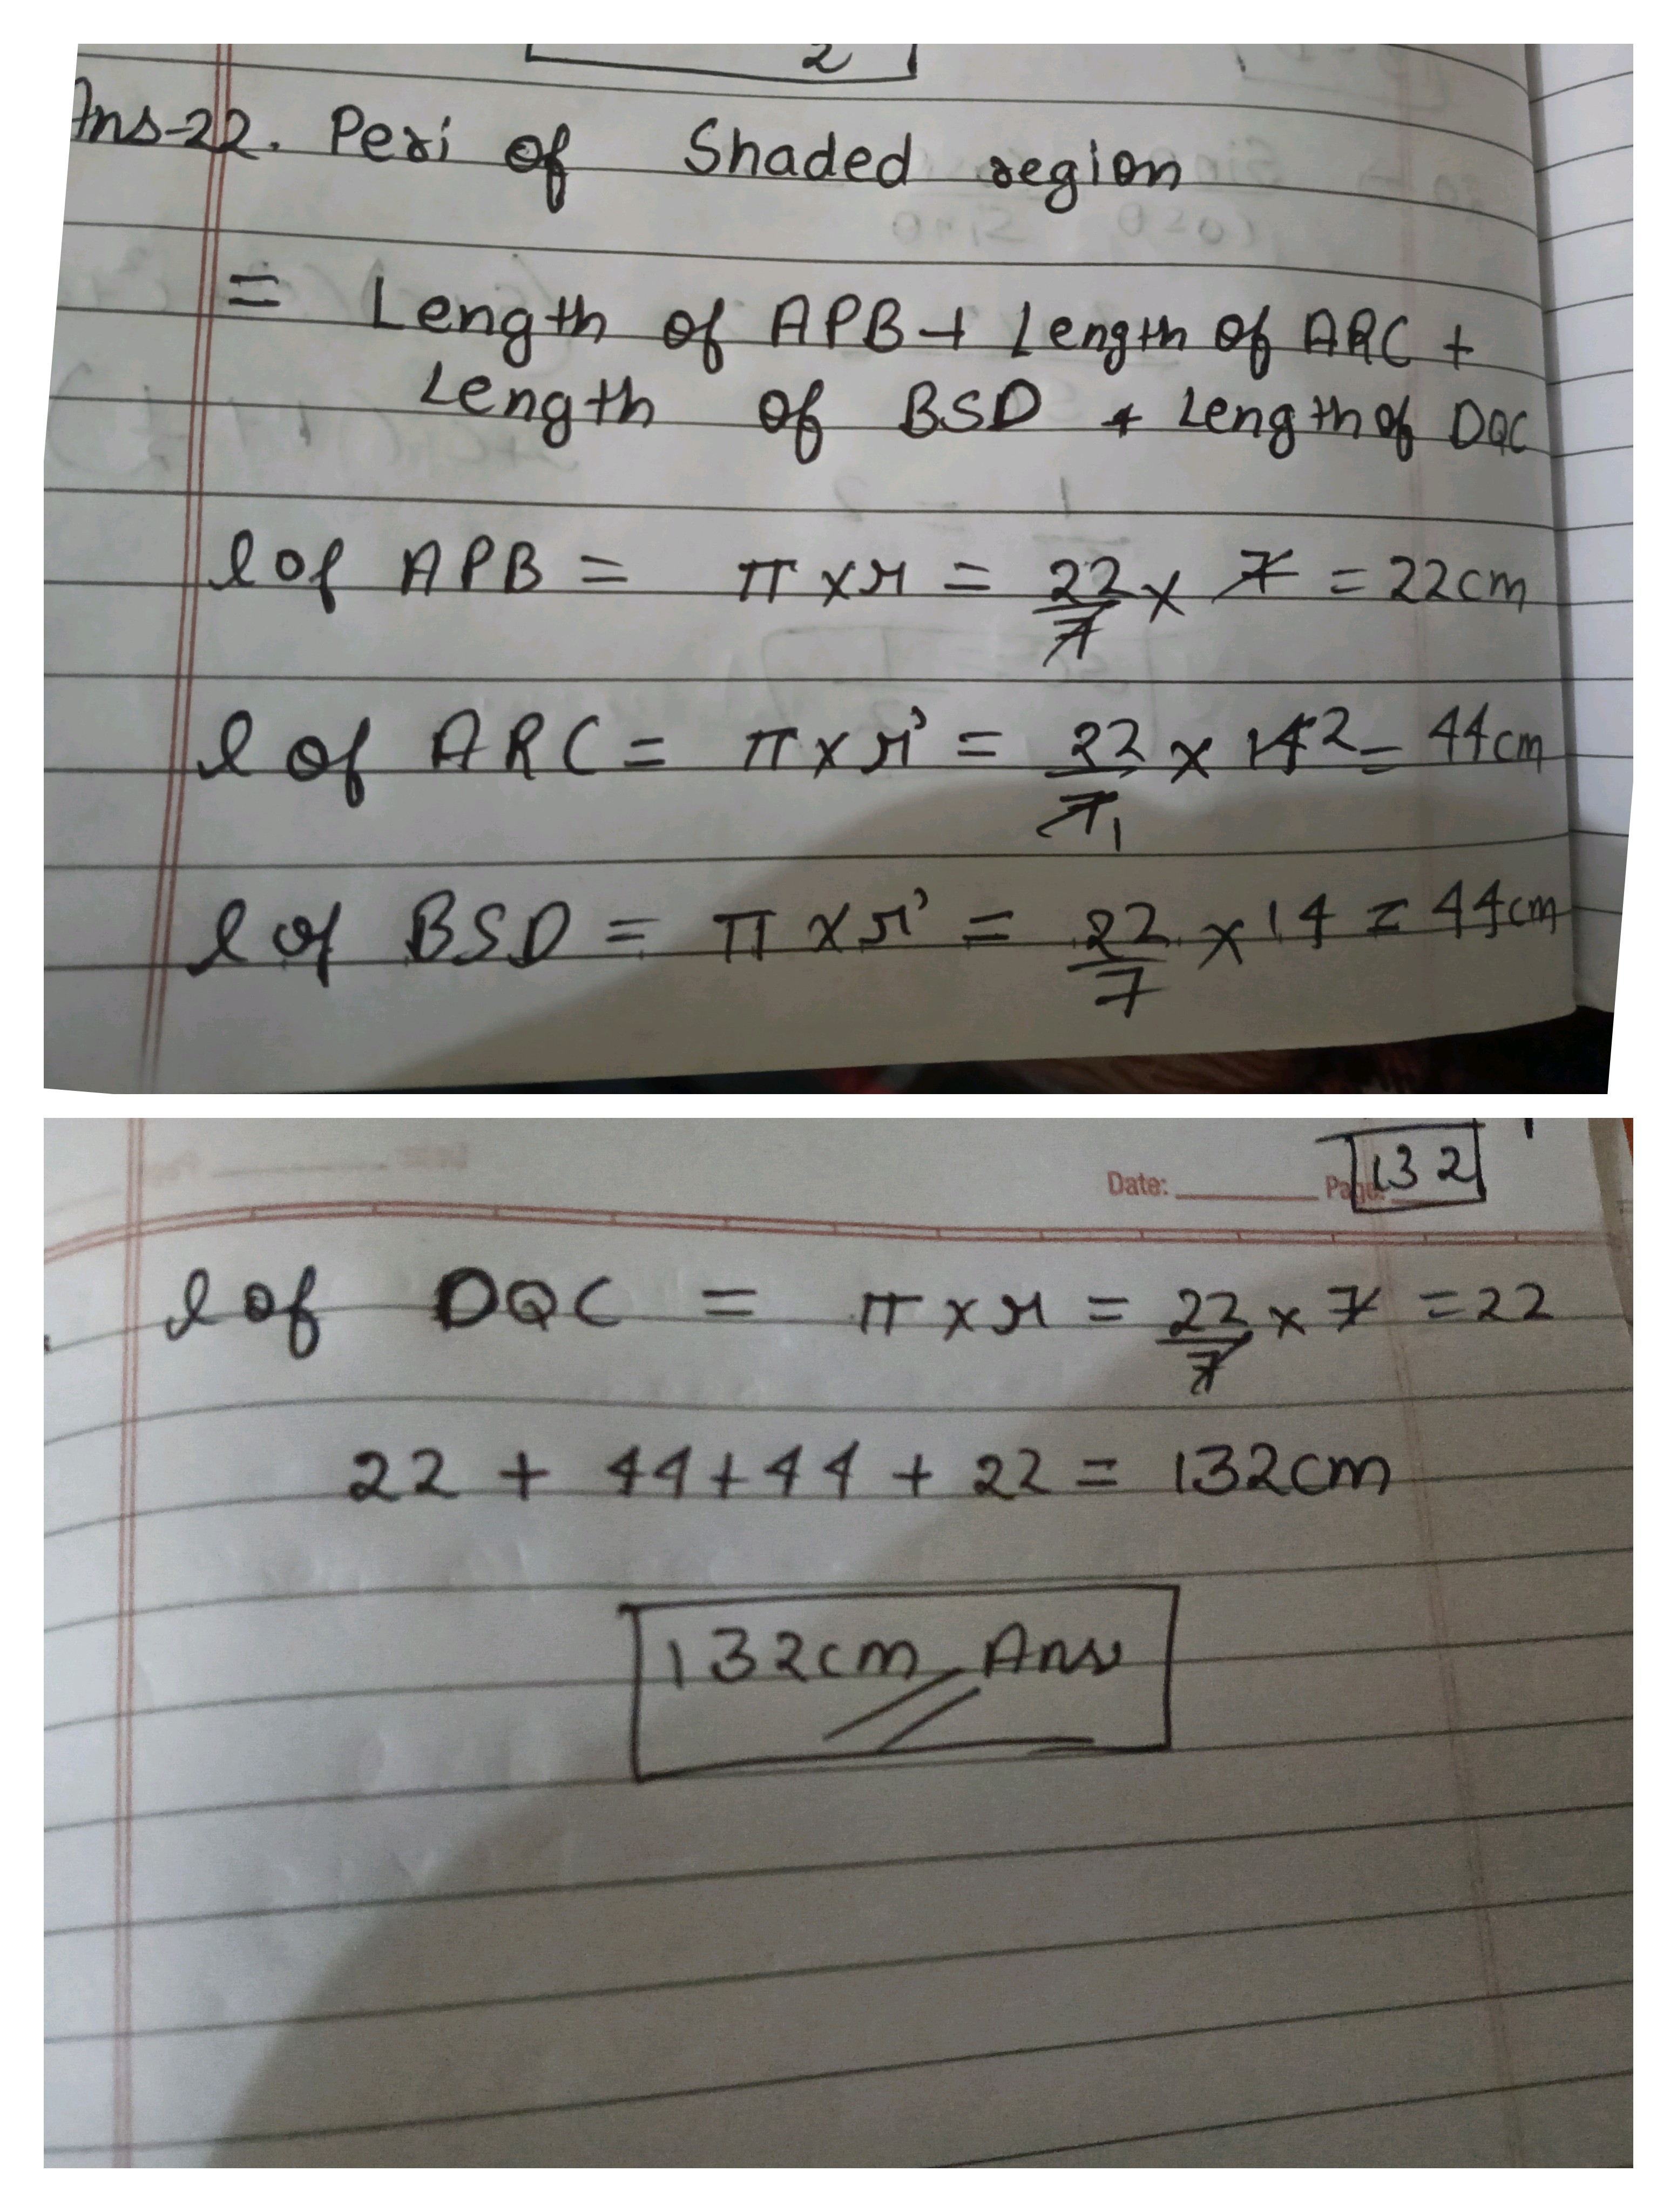 2
Ans-22. Peri of Shaded region
= Length of APB + Length of ARC +
Length of BSD + Length of DQC
l of APB = π × r = 22/7 × 7 = 22cm
l of ARC = π × r' = 22/7 1 × 14 2 = 44cm
l of BSD = π × r' = 22/7 × 14 = 44cm
132
Date: Page:
l of DQC = π × r = 22/7 × 7 = 22
22 + 44 + 44 + 22 = 132cm
132cm Ans